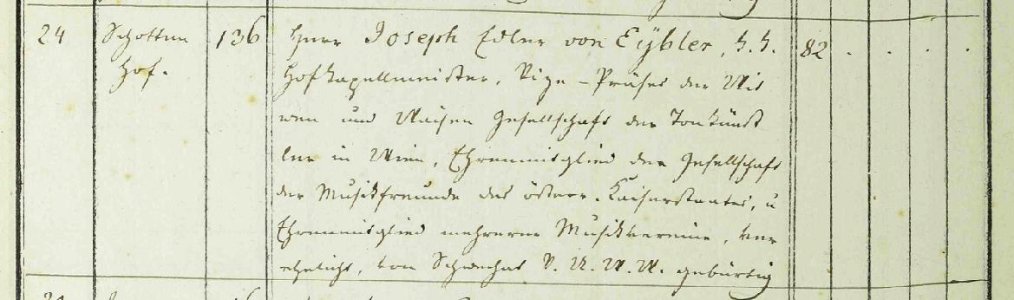 24 Schotten 136 Herr Joseph Edler von Eybler, k. k. 82
Hof. Hofkapellmeister, Vize-Präses der Wit
wen und Waisen Gesellschaft der Tonkünst
ler in Wien, Ehrenmitglied der Gesellschaft
der Musikfreunde des österr. Kaiserstaates, u
Ehrenmitglied mehrerer Musikvereine, ver
ehelicht, von Schwechat V. U. W. W. gebürtig